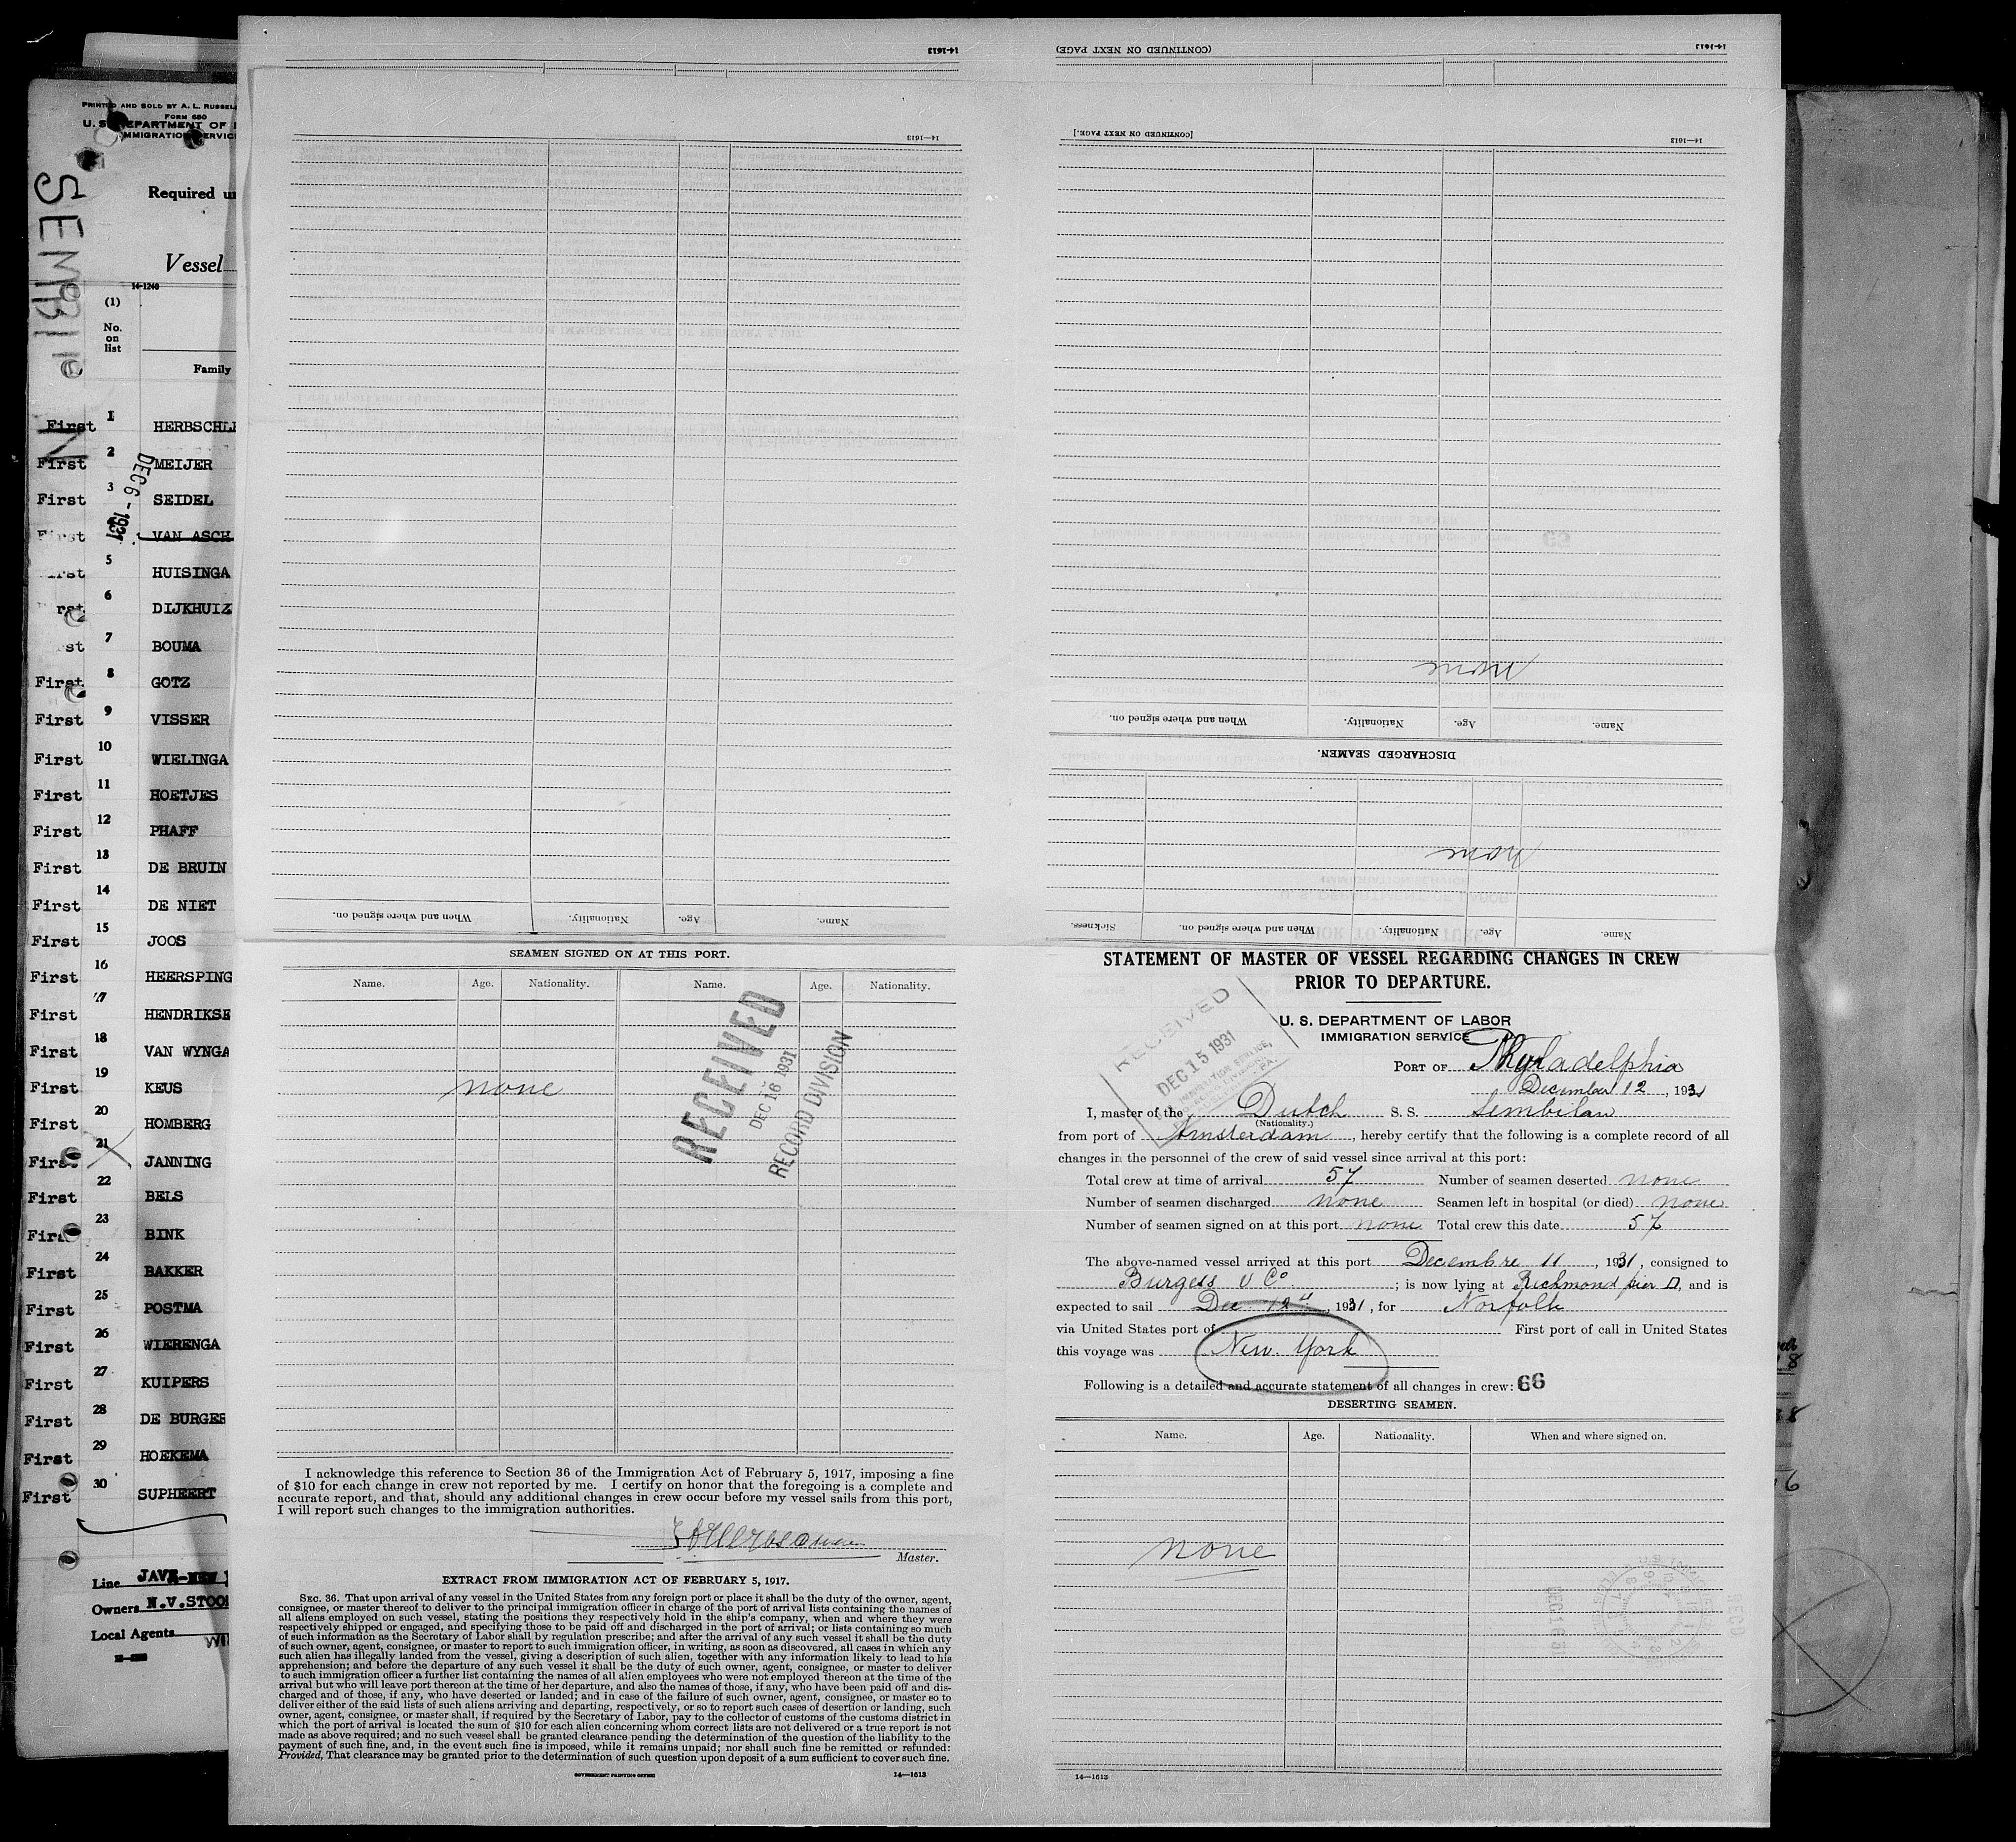 14-1613
(CONTINUED ON NEXT PAGE)
14-1613
14—1613
[CONTINUED ON NEXT PAGE.]
14—1613
PRINTED AND SOLD BY A. L. RUSSEL
FORM 680
U. S. DEPARTMENT OF
IMMIGRATION SERVIC
Required un
Vessel
14-1240
(1)
No. on list
Family
SEMBI
DEC 6 - 1931
First 1 HERBSCHL
First 2 MEIJER
First 3 SEIDEL
First VAN ASCH
5 HUISINGA
6 DIJKHUIZ
7 BOUMA
First 8 GOTZ
First 9 VISSER
First 10 WIELINGA
First 11 HOETJES
First 12 PHAFF
First 13 DE BRUIN
First 14 DE NIET
First 15 JOOS
First 16 HEERSPING
First 17 HENDRIKSE
First 18 VAN WYNGA
First 19 KEUS
First 20 HOMBERG
First 21 JANNING
First 22 BELS
First 23 BINK
First 24 BAKKER
First 25 POSTMA
First 26 WIERENGA
First 27 KUIPERS
First 28 DE BURGER
First 29 HOEKEMA
First 30 SUPHEERT
Line JAVA-NEW
Owners N.V.STOO
Local Agents
none
Name. Age. Nationality. When and where signed on.
DISCHARGED SEAMEN.
none
Name. Age. Nationality. When and where signed on. Sickness.
Name. Age. Nationality. When and where signed on.
SEAMEN SIGNED ON AT THIS PORT.
Name. Age. Nationality. Name. Age. Nationality.
none
RECEIVED
DEC 16 1931
RECORD DIVISION
I acknowledge this reference to Section 36 of the Immigration Act of February 5, 1917, imposing a fine
of $10 for each change in crew not reported by me. I certify on honor that the foregoing is a complete and
accurate report, and that, should any additional changes in crew occur before my vessel sails from this port,
I will report such changes to the immigration authorities.
Master.
EXTRACT FROM IMMIGRATION ACT OF FEBRUARY 5, 1917.
SEC. 36. That upon arrival of any vessel in the United States from any foreign port or place it shall be the duty of the owner, agent,
consignee, or master thereof to deliver to the principal immigration officer in charge of the port of arrival lists containing the names of
all aliens employed on such vessel, stating the positions they respectively hold in the ship's company, when and where they were
respectively shipped or engaged, and specifying those to be paid off and discharged in the port of arrival; or lists containing so much
of such information as the Secretary of Labor shall by regulation prescribe; and after the arrival of any such vessel it shall be the duty
of such owner, agent, consignee, or master to report to such immigration officer, in writing, as soon as discovered, all cases in which any
such alien has illegally landed from the vessel, giving a description of such alien, together with any information likely to lead to his
apprehension; and before the departure of any such vessel it shall be the duty of such owner, agent, consignee, or master to deliver
to such immigration officer a further list containing the names of all alien employees who were not employed thereon at the time of the
arrival but who will leave port thereon at the time of her departure, and also the names of those, if any, who have been paid off and dis-
charged and of those, if any, who have deserted or landed; and in case of the failure of such owner, agent, consignee, or master so to
deliver either of the said lists of such aliens arriving and departing, respectively, or so to report such cases of desertion or landing, such
owner, agent, consignee, or master shall, if required by the Secretary of Labor, pay to the collector of customs of the customs district in
which the port of arrival is located the sum of $10 for each alien concerning whom correct lists are not delivered or a true report is not
made as above required; and no such vessel shall be granted clearance pending the determination of the question of the liability to the
payment of such fine, and, in the event such fine is imposed, while it remains unpaid; nor shall such fine be remitted or refunded:
Provided, That clearance may be granted prior to the determination of such question upon deposit of a sum sufficient to cover such fine.
GOVERNMENT PRINTING OFFICE 14—1613
STATEMENT OF MASTER OF VESSEL REGARDING CHANGES IN CREW
PRIOR TO DEPARTURE.
U. S. DEPARTMENT OF LABOR
IMMIGRATION SERVICE
RECEIVED
DEC 15 1931
IMMIGRATION SERVICE,
PA.
PORT OF Phyladelphia
December 12, 1931
I, master of the Dutch S. S. Sembilan
(Nationality.)
from port of Amsterdam, hereby certify that the following is a complete record of all
changes in the personnel of the crew of said vessel since arrival at this port:
Total crew at time of arrival 57 Number of seamen deserted none
Number of seamen discharged none Seamen left in hospital (or died) none
Number of seamen signed on at this port none Total crew this date 57
The above-named vessel arrived at this port Decembre 11, 1931, consigned to
Burgess & Co; is now lying at Richmond pier D, and is
expected to sail Dec 12", 1931, for Norfolk
via United States port of First port of call in United States
this voyage was New York
Following is a detailed and accurate statement of all changes in crew: 66
DESERTING SEAMEN.
Name. Age. Nationality. When and where signed on.
none
REC'D
DEC 16 31
14—1613